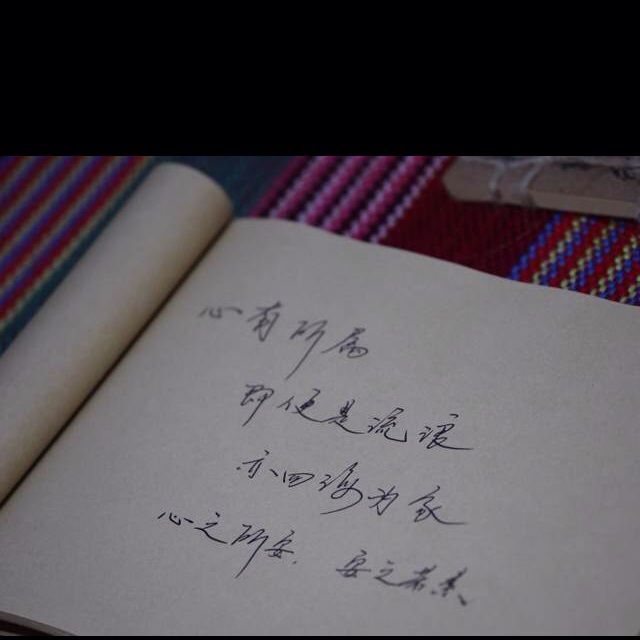 心有所属
即便是流浪
亦四海为家
心之所安. 安之若素、